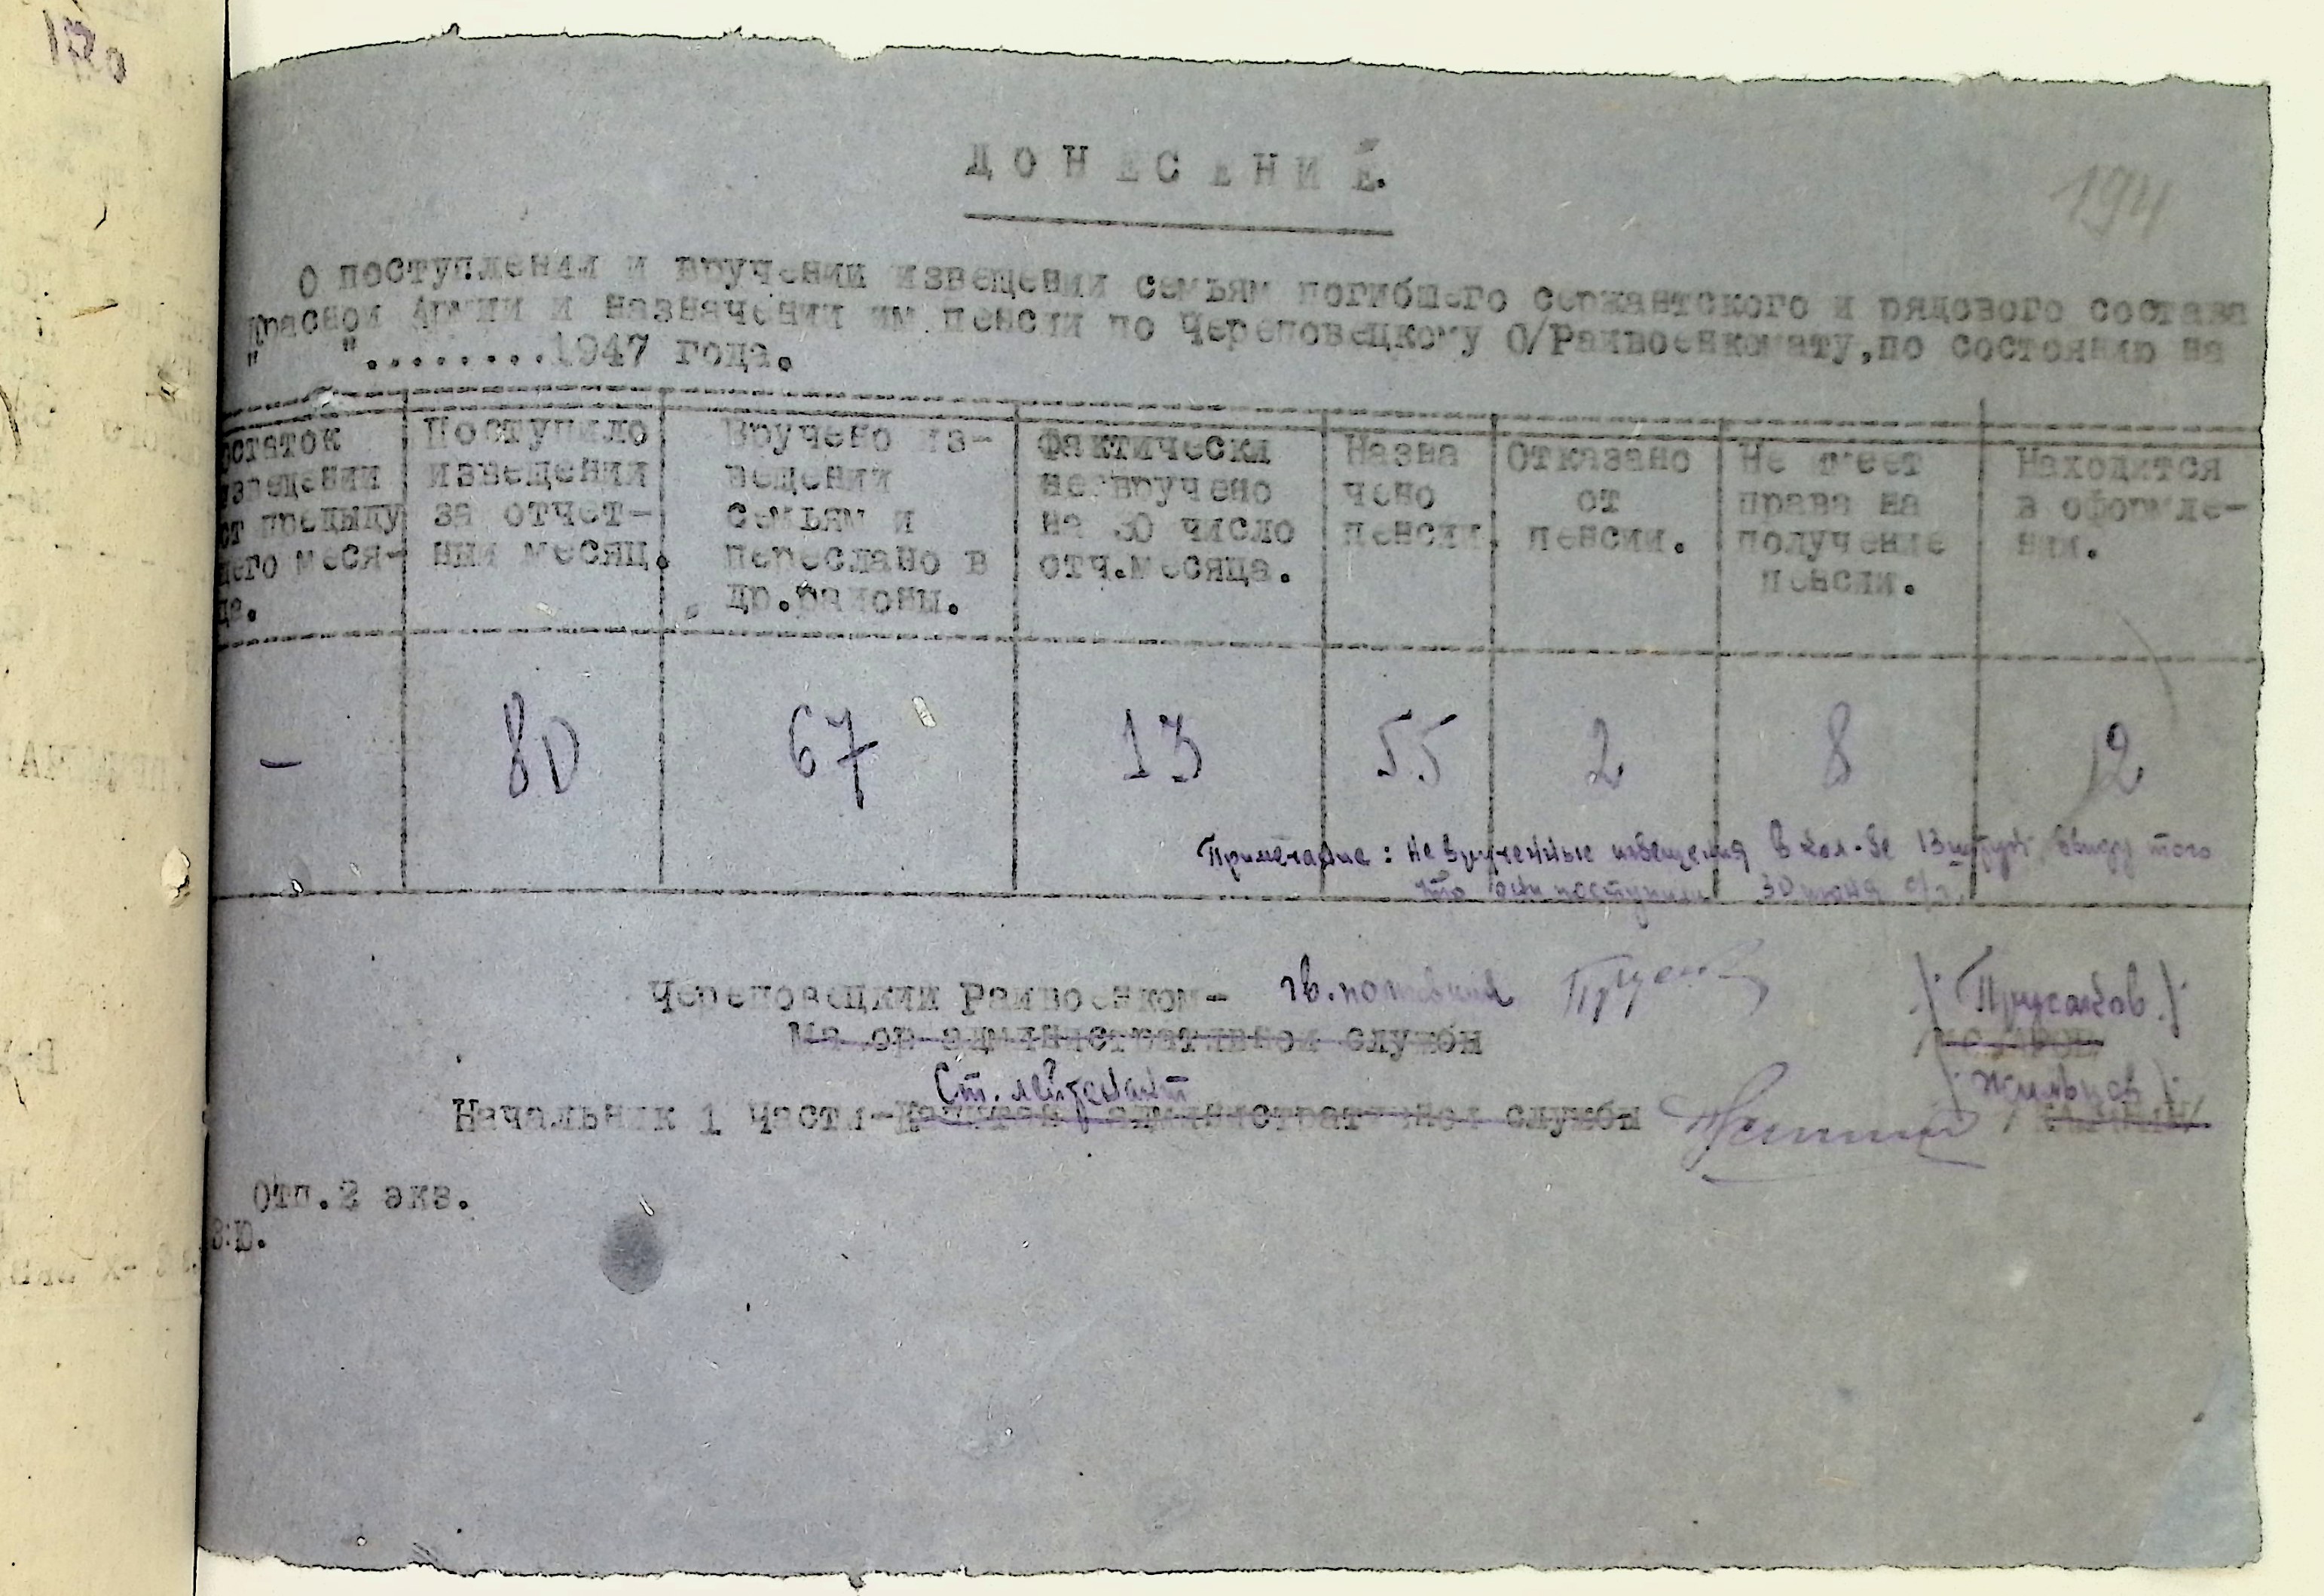 194
ДОНЕСЕНИЕ.
О поступлении и вручении извещений семьям погибшего сержантского и рядового состава
Красной Армии и назначении им пенсии по Череповецкому О/Райвоенкомату, по состоянию на
" ".........1947 года.
остаток извещений от предыдущего месяца.
Поступило извещений за отчетный месяц.
Вручено извещений семьям и переслано в др.районы.
Фактически невручено на 30 число отч.месяца.
Назначено пенсии.
Отказано от пенсии.
Не имеет права на получение пенсии.
Находится в оформлении.
- 80 67 13 55 2 8 12
Примечание: не врученные извещения в кол-ве 13 штук ввиду того
что они поступили 30 июня с/г.
Череповецкий Райвоенком- гв. /Прусаков/
Майор административной службы
Ст. лейтенант
Начальник 1 части-Капитан административной службы
Отп.2 экз.